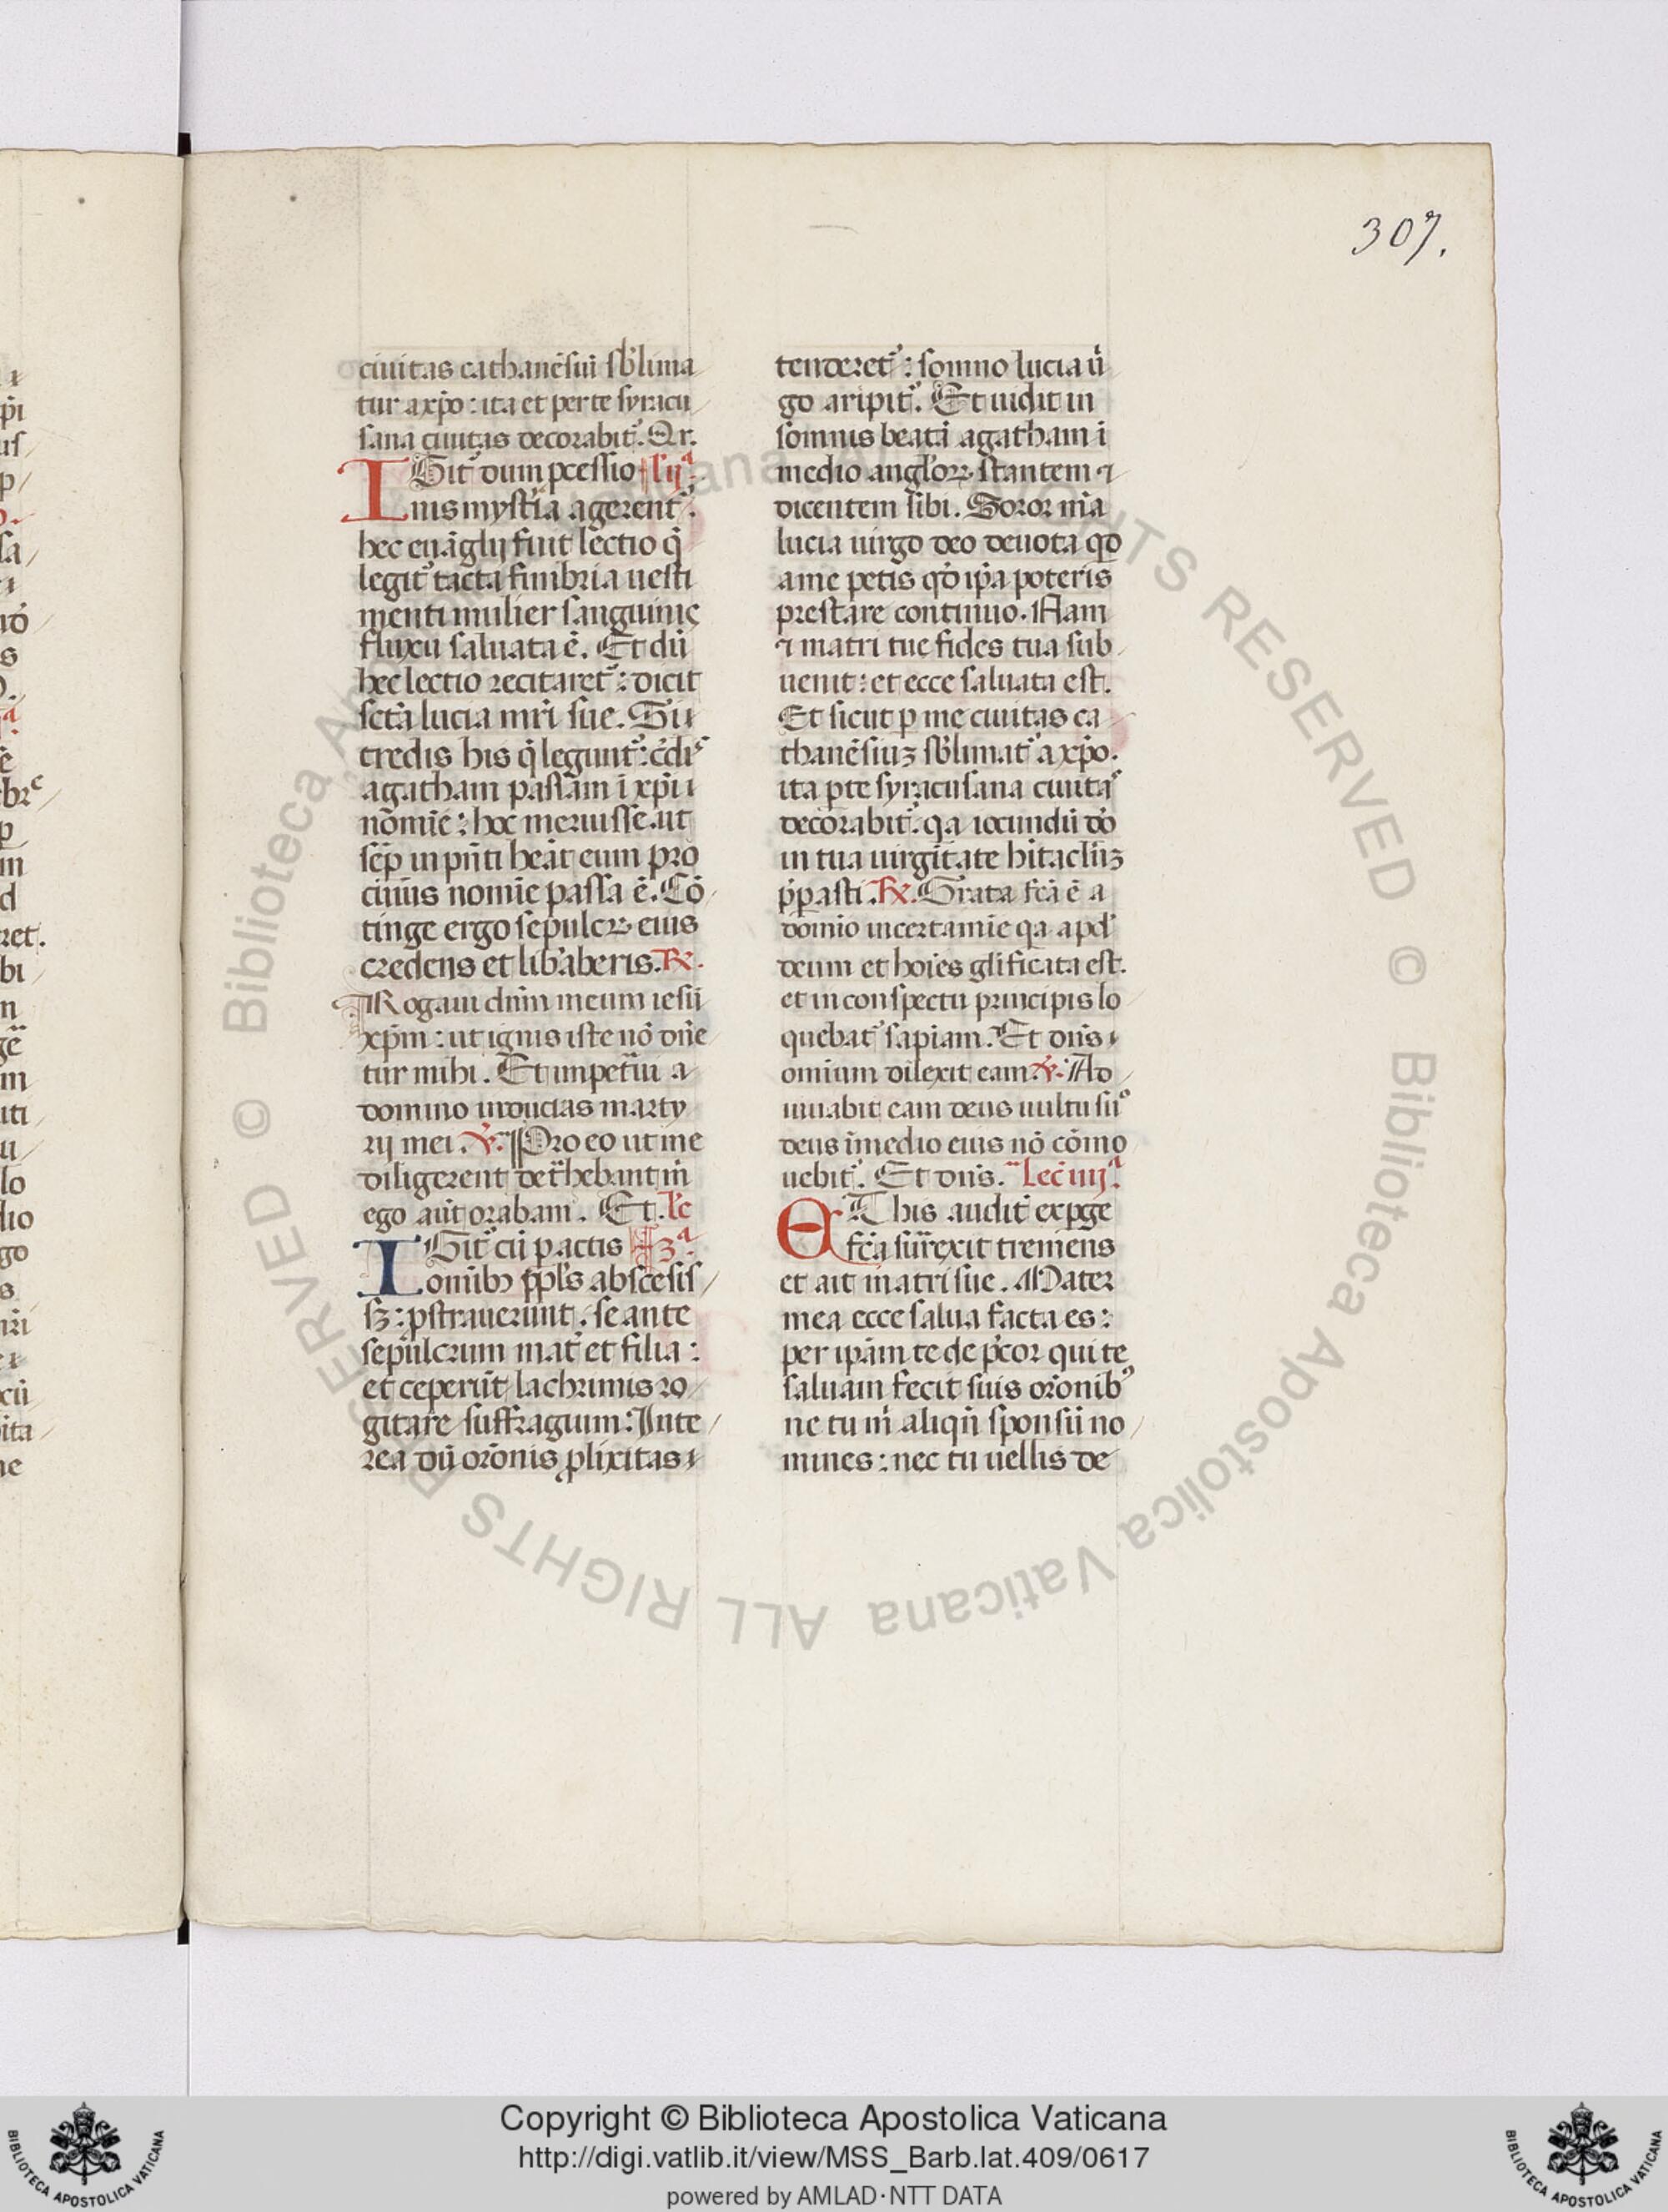 307.
ciuitas cathanēsiū sb̓lima
tur a xp̄o : ita et per te syracu
sana ciuitas decorabit᷑. Or.
IGit᷑ dum p̄cessio l' ij ͣ
nis mystīa agerent᷑.
hec euāglij fuit lectio q̄
legit᷑ tacta fimbria uesti
menti mulier sanguinis
fluxu saluata ē. Et dū
hec lectio recitaret᷑ : dicit
sctā lucia mr̄i sue. Si
credis his q̄ legunt᷑ : c̄dis
agatham passam i xp̄i
nōmie : hoc meruisse ut
sēp in pn̄ti heāt eum pro
cuius nomīe passa ē. Cō
tinge ergo sepulcꝝ eius
credens et lib̓aberis. ℟.
Rogaui dnm̄ meum iesū
xp̄m : ut ignis iste nō dn̄e
tur mihi. Et impet̄ui a
domino inducias marty
rij mei. ℣. Pro eo ut me
diligerent det̄hebant m̄
ego aūt orabam. Et. lc̄
IGit᷑ cū pactis 3ͣ
omīb₉ pp̄lis abscesis
sꝫ : pstrauerunt se ante
sepulcrum mat̄ et filia :
et ceperūt lachrimis ro
gitare suffragium : Inte
rea dū orōnis plixitas
tenderet᷑ : somno lucia ū
go aripit᷑. Et uidit in
somnis beatā agatham i
medio angl̓oꝝ stantem ⁊
dicentem sibi. Soror mā
lucia uirgo deo deuota qd̄
a me petis qd̄ ip̄a poteris
prestare continuo. Nam
⁊ matri tue fides tua sub
uenit : et ecce saluata est.
Et sicut p me ciuitas ca
thanēsiuꝫ sb̓limat᷑ a xp̄o.
ita p te syracusana ciuitas
decorabit᷑. q̄a iocundū dō
in tua uirgītate hītacl̄uꝫ
pp̄asti. ℟. Grata fcā ē a
domīo in certamīe q̄a apd̓
deum et hoīes gl̄ificata est.
et in conspectu principis lo
quebat᷑ sapiam. Et dn̄s
omium dilexit eam. ℣. Ad
iuuabit eam deus uultu su᷒
deus ī medio eius nō cōmo
uebit᷑. Et dn̄s. Lec̄ iiij ͣ.
ET his audit̄ exp̄ge
fcā surrexit tremens
et ait matri sue. Mater
mea ecce salua facta es :
per ip̄am te de p̄cor qui te
saluam fecit suis orōnib᷒
ne tu m̄ aliqn̄ sponsū no
mines : nec tu uellis de
Copyright © Biblioteca Apostolica Vaticana
http://digi.vatlib.it/view/MSS_Barb.lat.409/0617
powered by AMLAD·NTT DATA
BIBLIOTECA APOSTOLICA VATICANA
BIBLIOTECA APOSTOLICA VATICANA
© Biblioteca Apostolica Vaticana ALL RIGHTS RESERVED
© Biblioteca Apostolica Vaticana ALL RIGHTS RESERVED